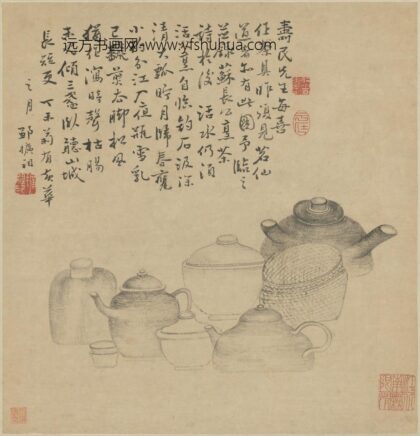 壽民先生每喜
茶具昨須見茗仙
道者有此圖予臨之
並錄蘇長公烹茶
詩於後 活水仍須
活火烹自臨釣石汲深
清大瓢貯月歸春甕
小杓分江入夜瓶雪乳
已翻煎處脚松風
猶作瀉時聲枯腸
未傾三碗臥聽山城
長短更 丁未菊有黃華
之月 邵
远方书画网 yfshuhua.com